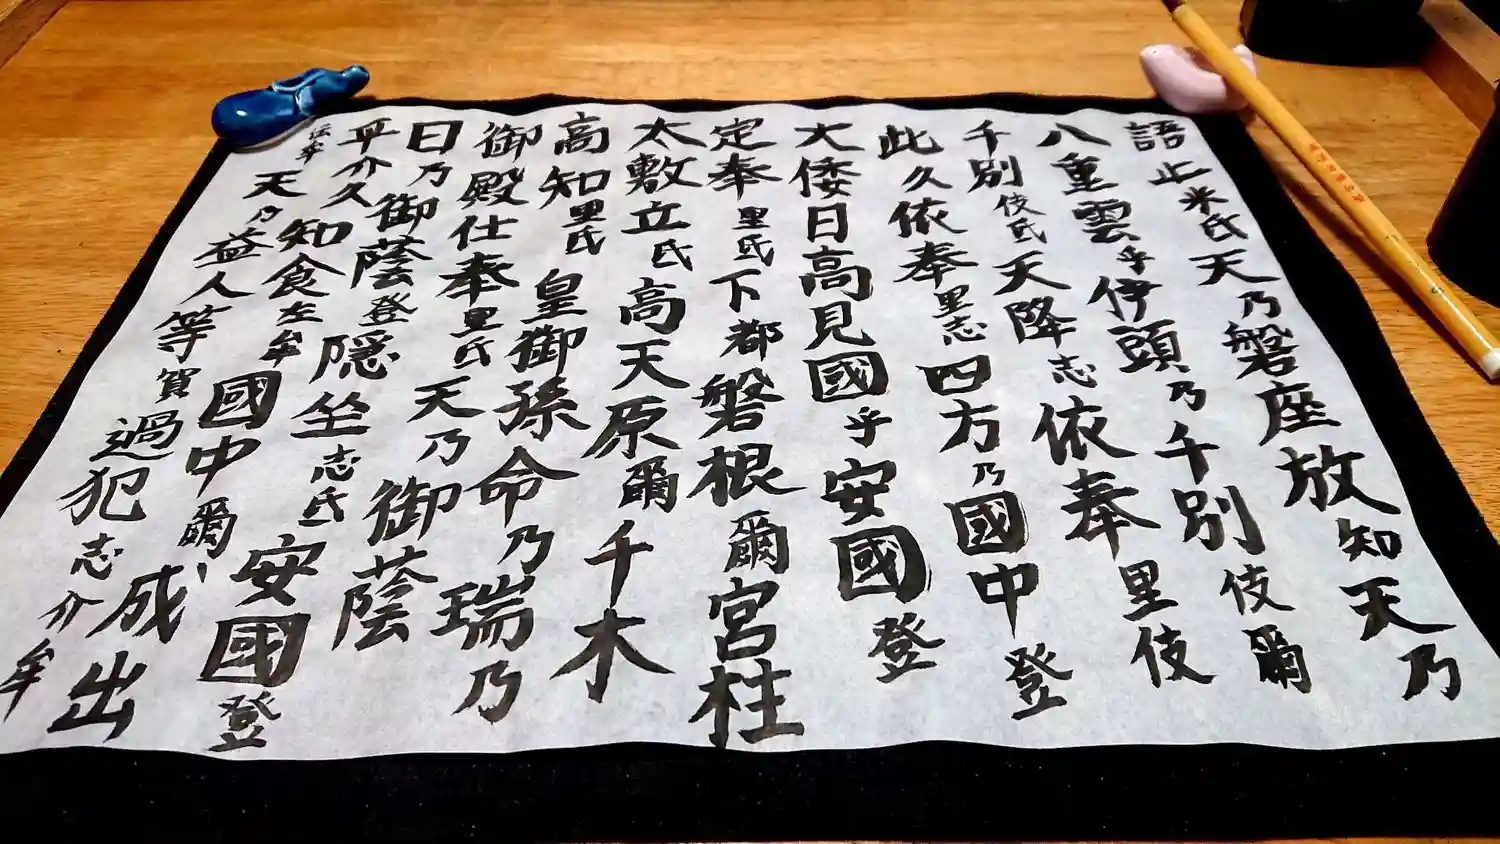 語止米氐天乃磐座放知天乃
八重雲乎伊頭乃千別伎爾
千別伎氐天降志依奉里伎
此久依奉里志四方乃國中登
大倭日高見國乎安國登
定奉里氐下都磐根爾宮柱
太敷立氐高天原爾千木
高知里氐皇御孫命乃瑞乃
御殿仕奉里氐天乃御蔭
日乃御蔭登隠坐志氐安國登
平介久知食左牟國中爾、成出
牟天乃益人等賀過犯志介牟